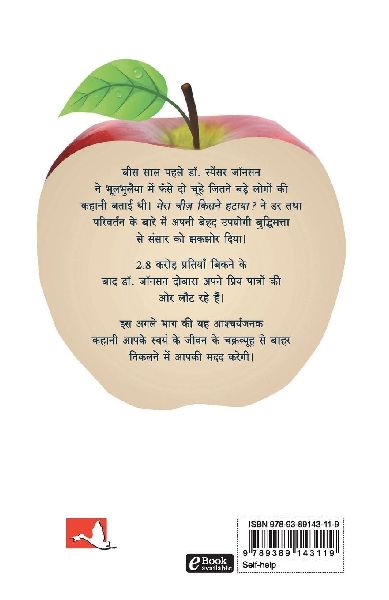 बीस साल पहले डॉ. स्पेंसर जॉनसन
ने भूलभुलैया में फँसे दो चूहे जितने बड़े लोगों की
कहानी बताई थी। मेरा चीज़ किसने हटाया? ने डर तथा
परिवर्तन के बारे में अपनी बेहद उपयोगी बुद्धिमत्ता
से संसार को झकझोर दिया।
2.8 करोड़ प्रतियाँ बिकने के
बाद डॉ. जॉनसन दोबारा अपने प्रिय पात्रों की
ओर लौट रहे हैं।
इस अगले भाग की यह आश्चर्यजनक
कहानी आपके स्वयं के जीवन के चक्रव्यूह से बाहर
निकलने में आपकी मदद करेगी।
ISBN 978-93-89143-11-9
9 789389 143119
eBook
available
Self-help